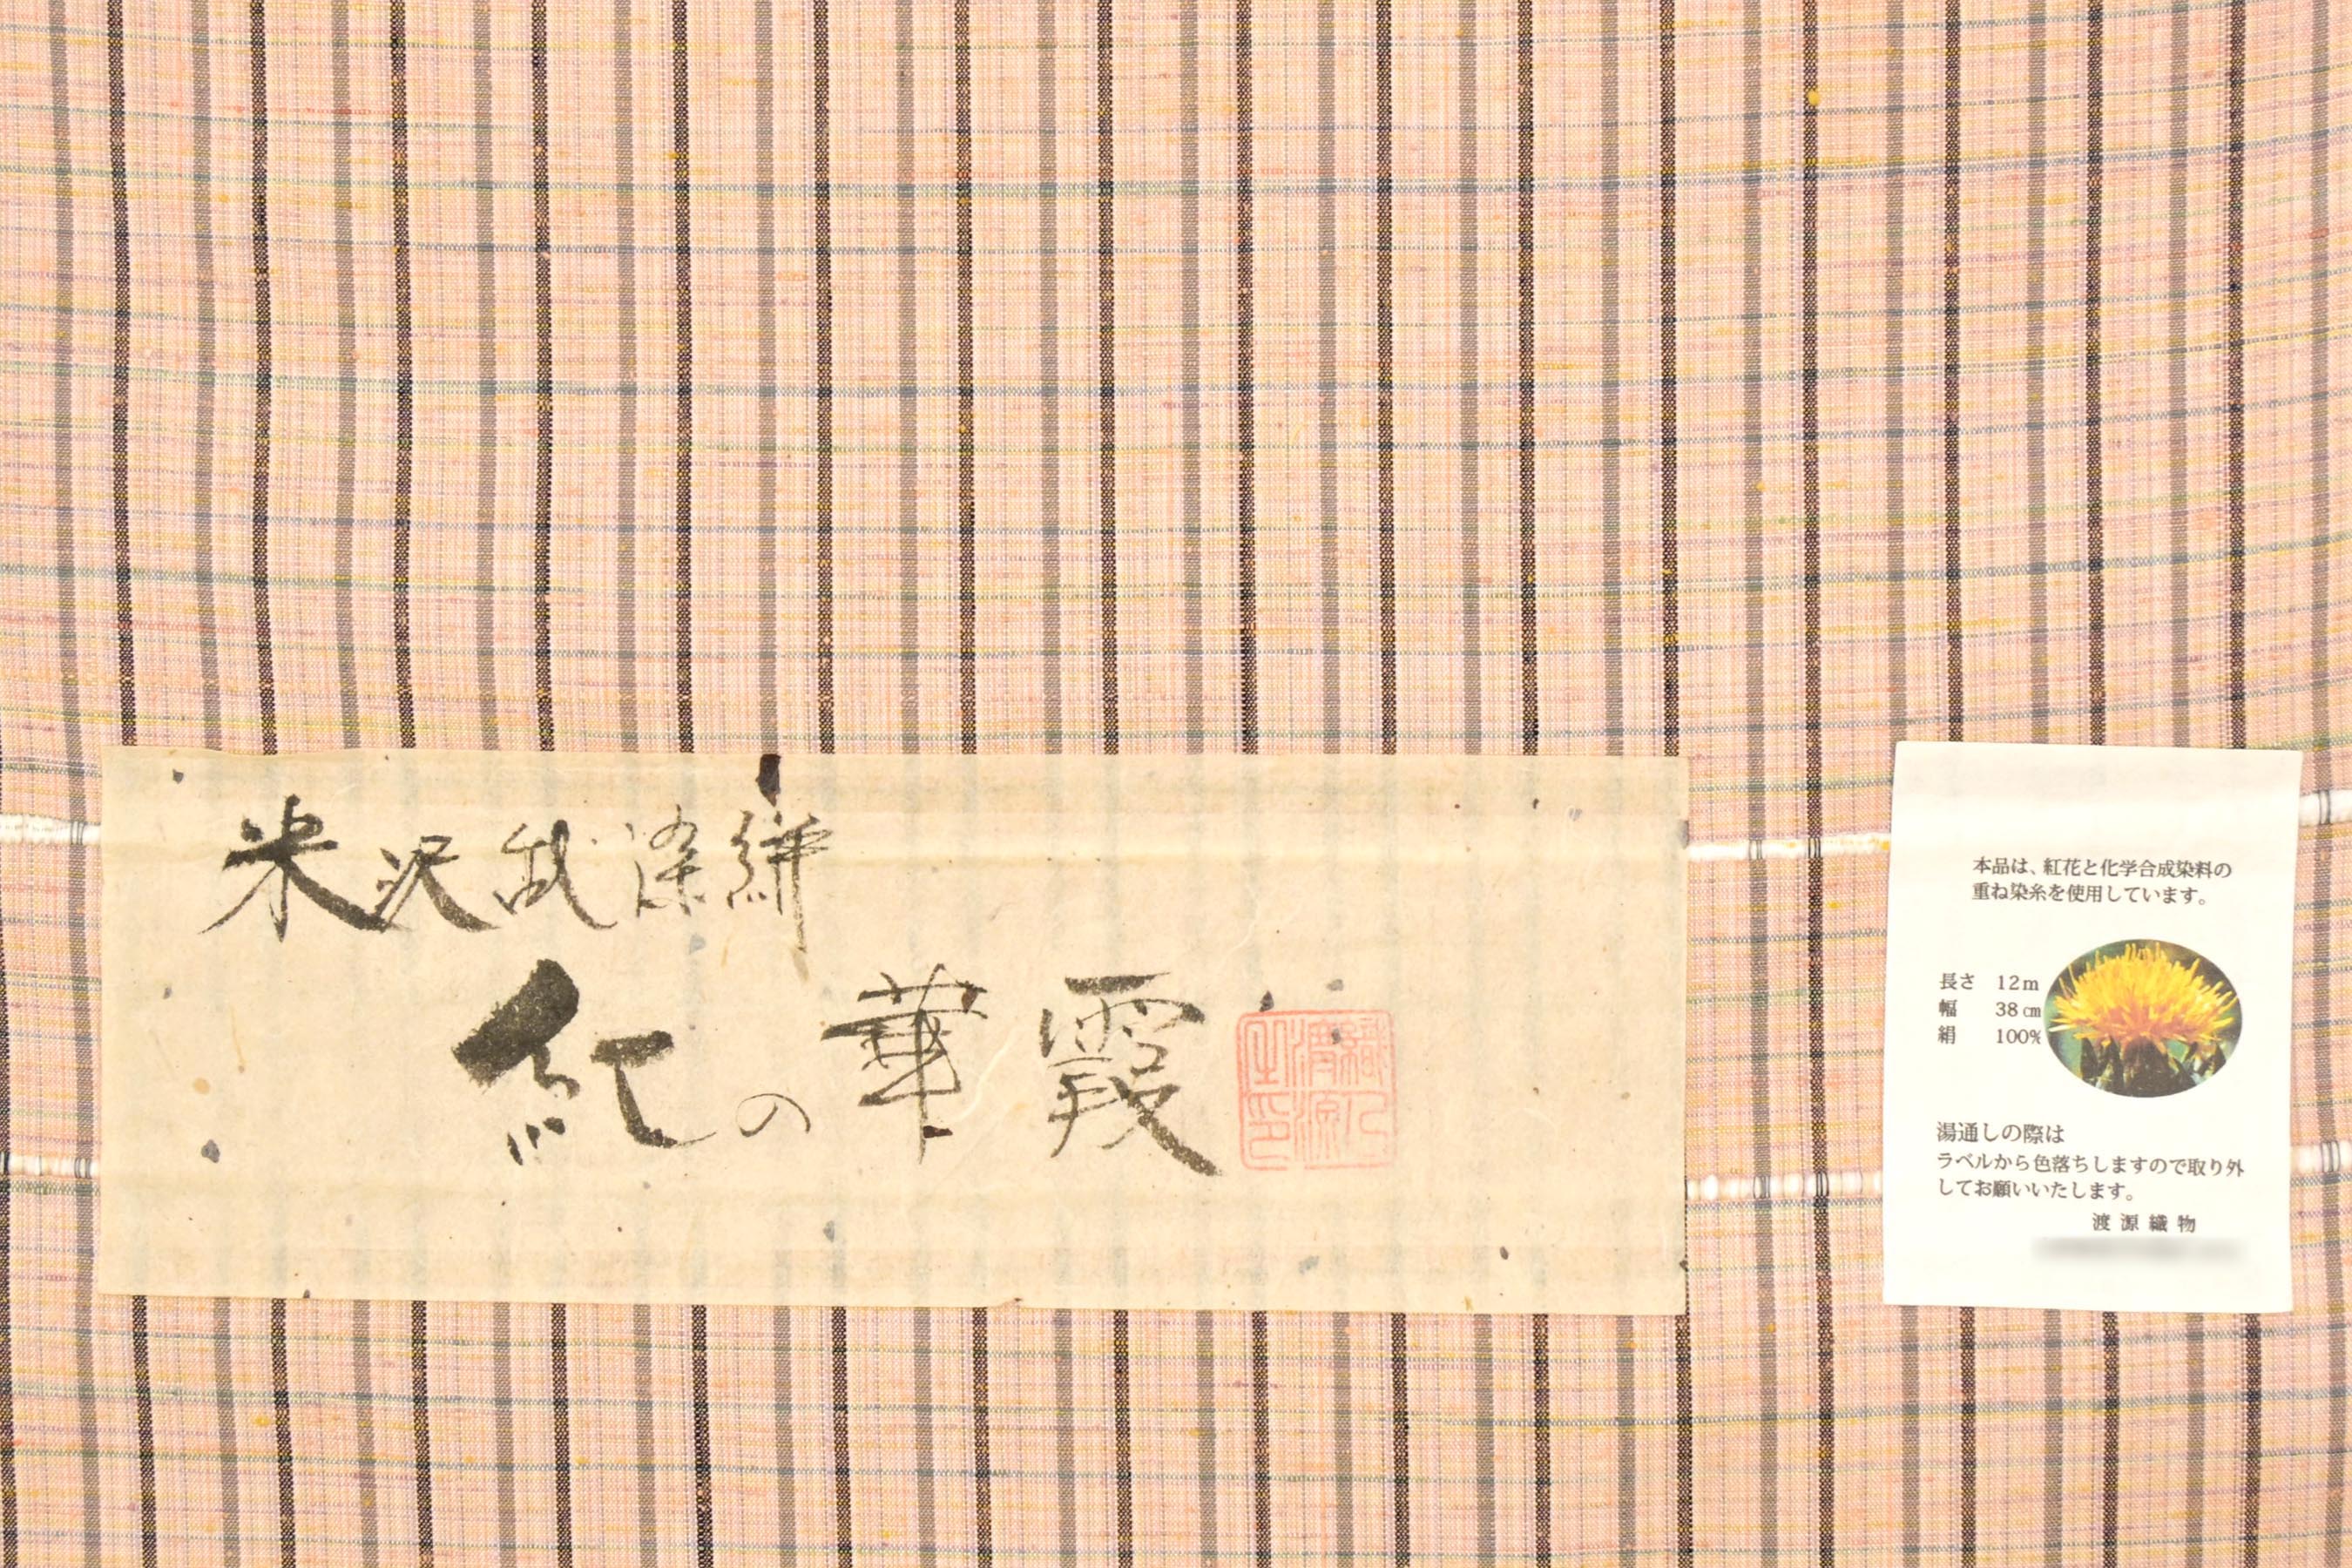 米沢 染絣
紅の華霞
渡源
本品は、紅花と化学合成染料の
重ね染糸を使用しています。
長さ 12m
幅 38㎝
絹 100%
湯通しの際は
ラベルから色落ちしますので取り外
してお願いいたします。
渡源織物